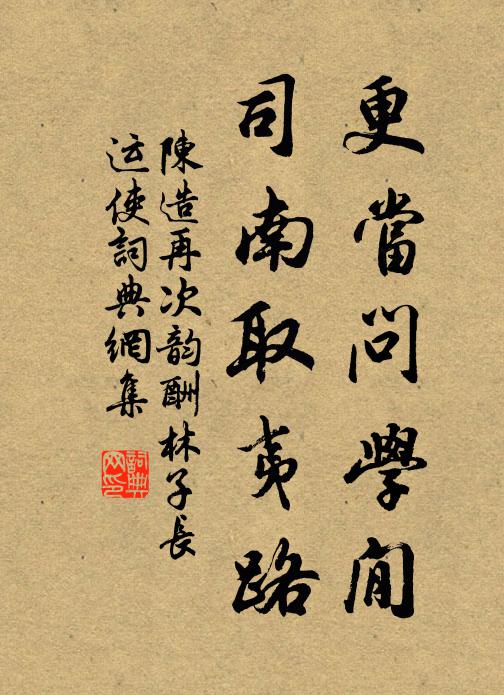 更當問學間
司南取夷路
陳造再次韵酬林子長
运使詞典網集
詞典网印